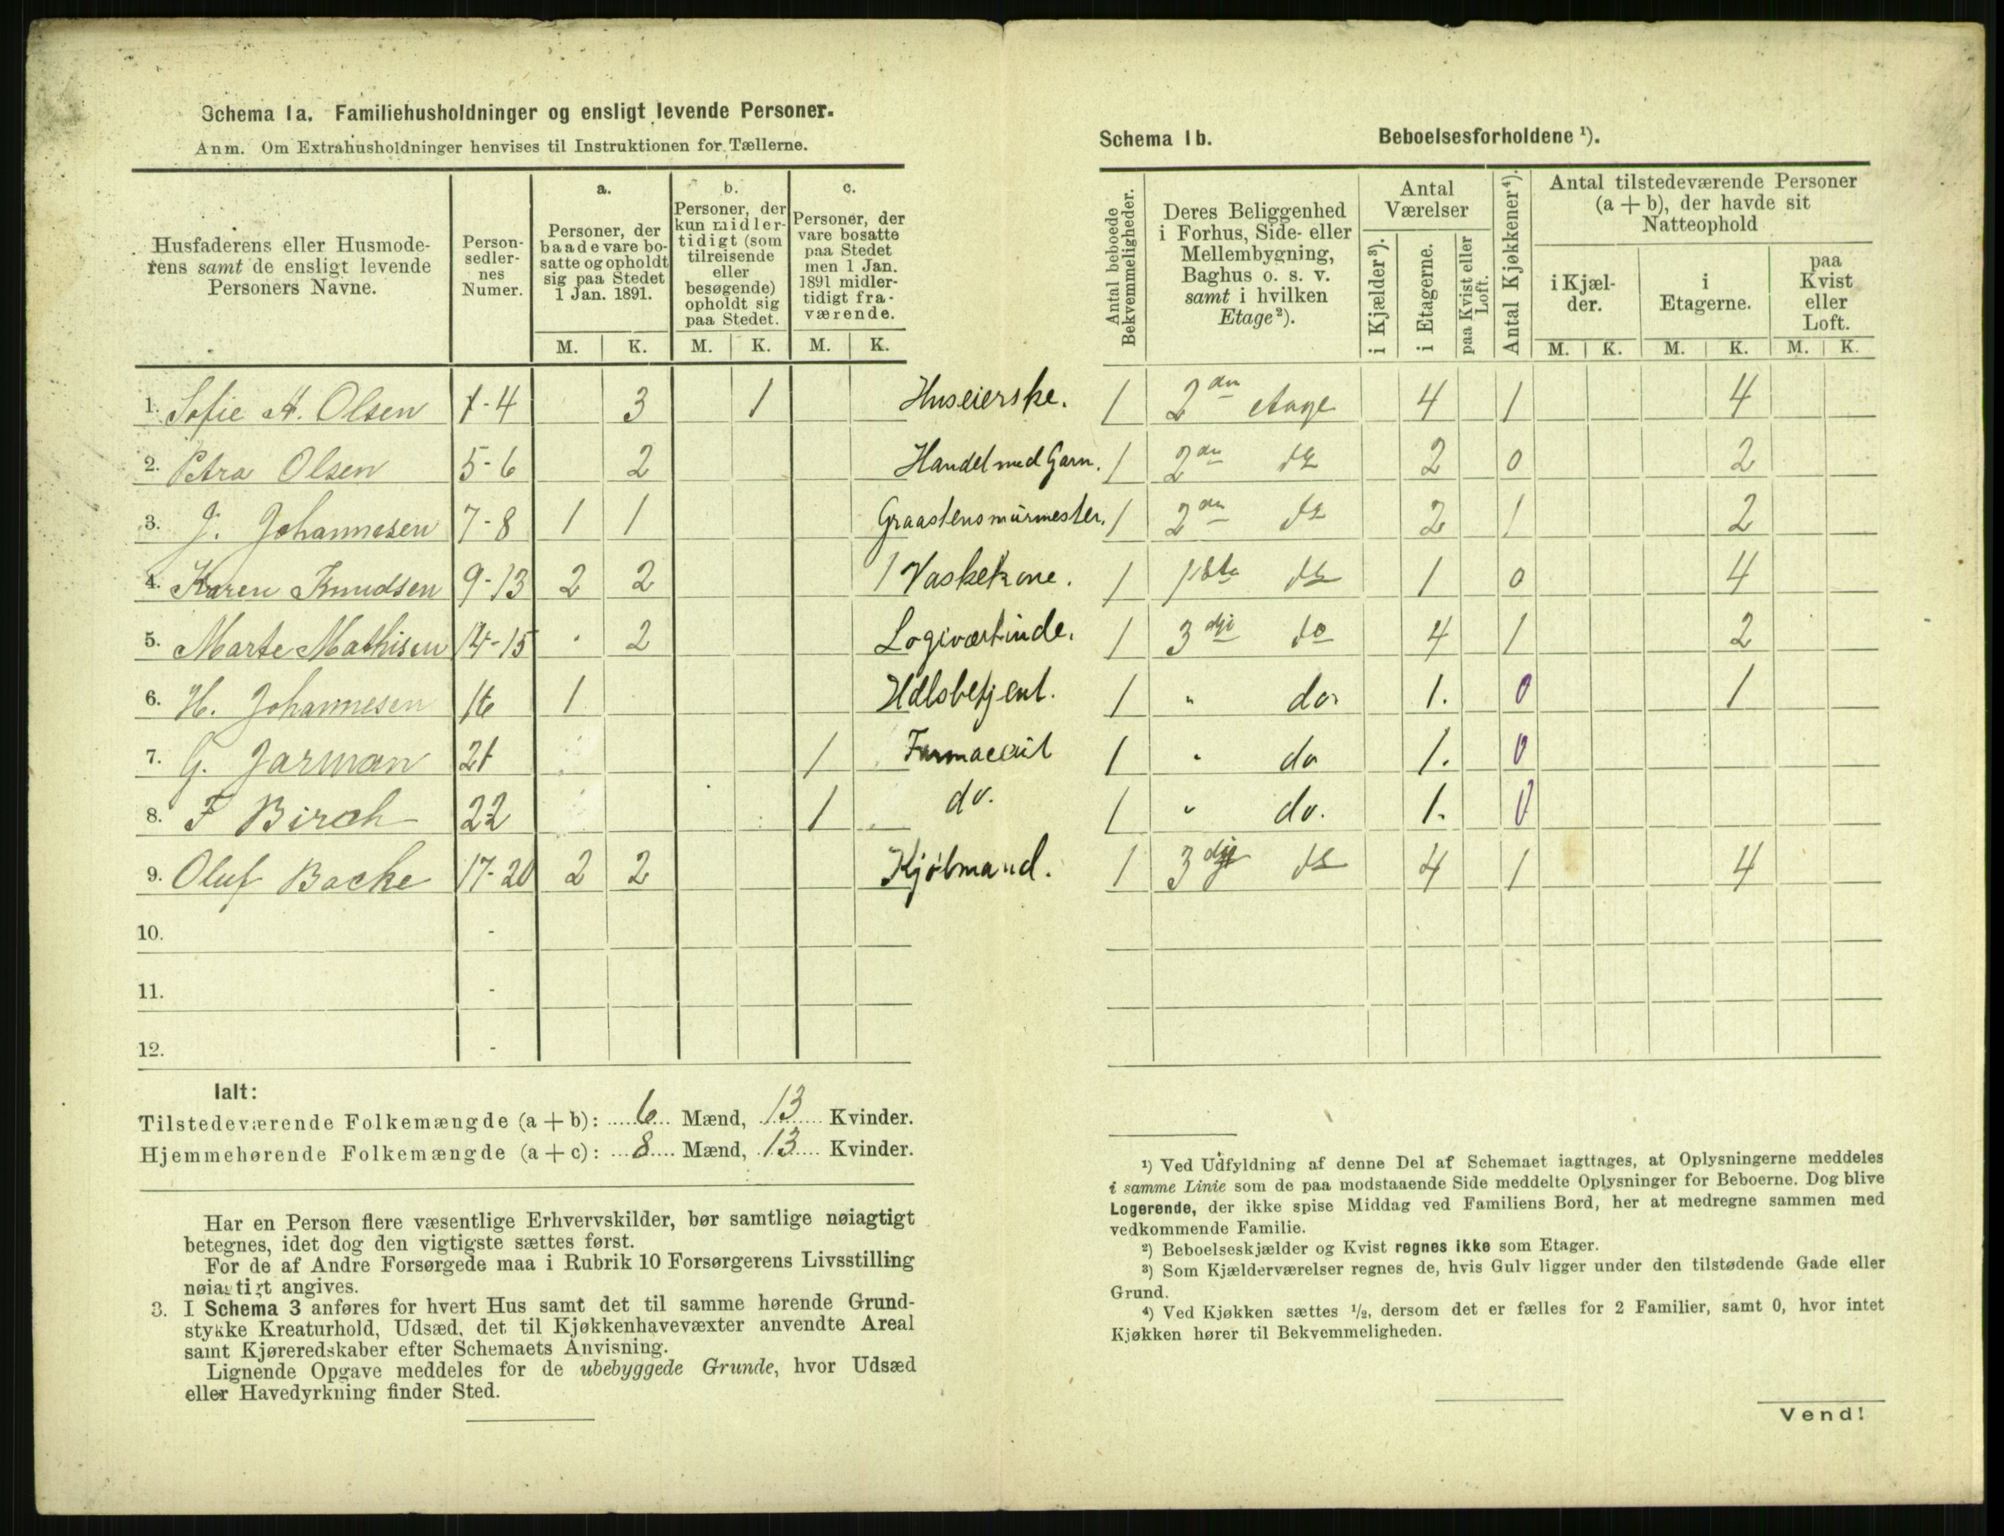 Schema 1a. Familiehusholdninger og ensligt levende Personer.
Anm. Om Extrahusholdninger henvises til Instruktionen for Tællerne.
Husfaderens eller Husmoderens samt de ensligt levende Personers Navne.
Personsedlernes Numer.
a. Personer, der baade vare bosatte og opholdt sig paa Stedet 1 Jan. 1891.
b. Personer, der kun midlertidigt (som tilreisende eller besøgende) opholdt sig paa Stedet.
c. Personer, der vare bosatte paa Stedet men 1 Jan. 1891 midlertidigt fraværende.
M. K. M. K. M. K.
1. Sofie A. Olsen 1-4 3 1 Huseierske.
2. Petra Olsen 5-6 2 Handel med Garn.
3. J. Johannesen 7-8 1 1 Graastensmurmester.
4. Karen Knudsen 9-13 2 2 1 Vaskekone.
5. Marte Mathisen 14-15 · 2 Logiværtinde.
6. H. Johannesen 16 1 Hdlsbetjent.
7. G. Jarman 21 1 Farmaceut
8. F Birch 22 1 do.
9. Oluf Backe 17-20 2 2 Kjøbmand.
10. -
11. -
12. -
Ialt:
Tilstedeværende Folkemængde (a + b): 6 Mænd, 13 Kvinder.
Hjemmehørende Folkemængde (a + c): 8 Mænd, 13 Kvinder.
Har en Person flere væsentlige Erhvervskilder, bør samtlige nøiagtigt
betegnes, idet dog den vigtigste sættes først.
For de af Andre Forsørgede maa i Rubrik 10 Forsørgerens Livsstilling
nøiagtigt angives.
3. I Schema 3 anføres for hvert Hus samt det til samme hørende Grund-
stykke Kreaturhold, Udsæd, det til Kjøkkenhavevæxter anvendte Areal
samt Kjøreredskaber efter Schemaets Anvisning.
Lignende Opgave meddeles for de ubebyggede Grunde, hvor Udsæd
eller Havedyrkning finder Sted.
Schema 1b. Beboelsesforholdene ¹).
Antal beboede Bekvemmeligheder.
Deres Beliggenhed i Forhus, Side- eller Mellembygning, Baghus o. s. v. samt i hvilken Etage²).
Antal Værelser
i Kjælder³).
i Etagerne.
paa Kvist eller Loft.
Antal Kjøkkener⁴).
Antal tilstedeværende Personer (a + b), der havde sit Natteophold
i Kjælder.
i Etagerne.
paa Kvist eller Loft.
M. K. M. K. M. K.
1 2den etage 4 1 4
1 2den do 2 0 2
1 2den do 2 1 2
1 1ste do 1 0 4
1 3dje do 4 1 2
1 " do. 1. 0 1
1 " do 1. 0
1 " do. 1. 0
1 3dje do 4 1 4
¹) Ved Udfyldning af denne Del af Schemaet iagttages, at Oplysningerne meddeles
i samme Linie som de paa modstaaende Side meddelte Oplysninger for Beboerne. Dog blive
Logerende, der ikke spise Middag ved Familiens Bord, her at medregne sammen med
vedkommende Familie.
²) Beboelseskjælder og Kvist regnes ikke som Etager.
³) Som Kjælderværelser regnes de, hvis Gulv ligger under den tilstødende Gade eller
Grund.
⁴) Ved Kjøkken sættes ½, dersom det er fælles for 2 Familier, samt 0, hvor intet
Kjøkken hører til Bekvemmeligheden.
Vend!